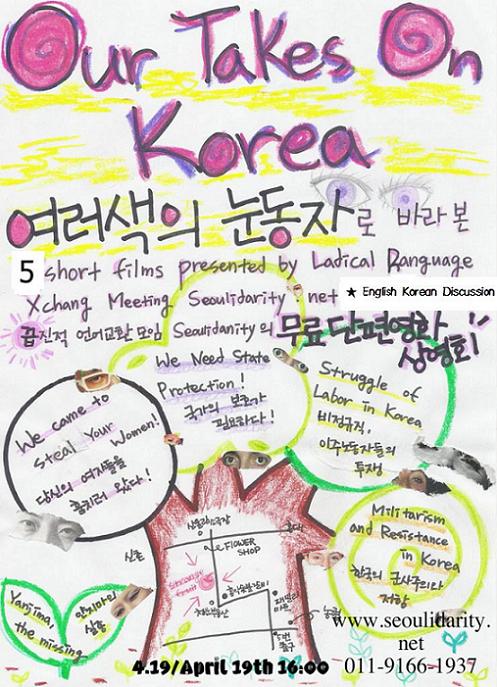 Our Takes On
Korea
여러색의 눈동자로 바라본
5 short films presented by Ladical Ranguage
Xchang Meeting Seoulidarity net
★ English Korean Discussion
끕진적 언어교환 모임 Seoulidarity의 무료 단편영화
상영회!
We Need State
Protection!
국가의 보호가
필요하다!
We came to
Steal Your Women!
당신의 여자들을
훔치러 왔다!
Struggle of
Labor in Korea
비정규직,
이주노동자들의
투쟁
Militarism
and Resistance
in Korea
한국의 군사주의와
저항
Yanjima,
the missing
얀지마의
실종
신촌
홍대
FLOWER
SHOP
strange
fruit
4.19/April 19th 16:00
www.seoulidarity.
net
011-9166-1937